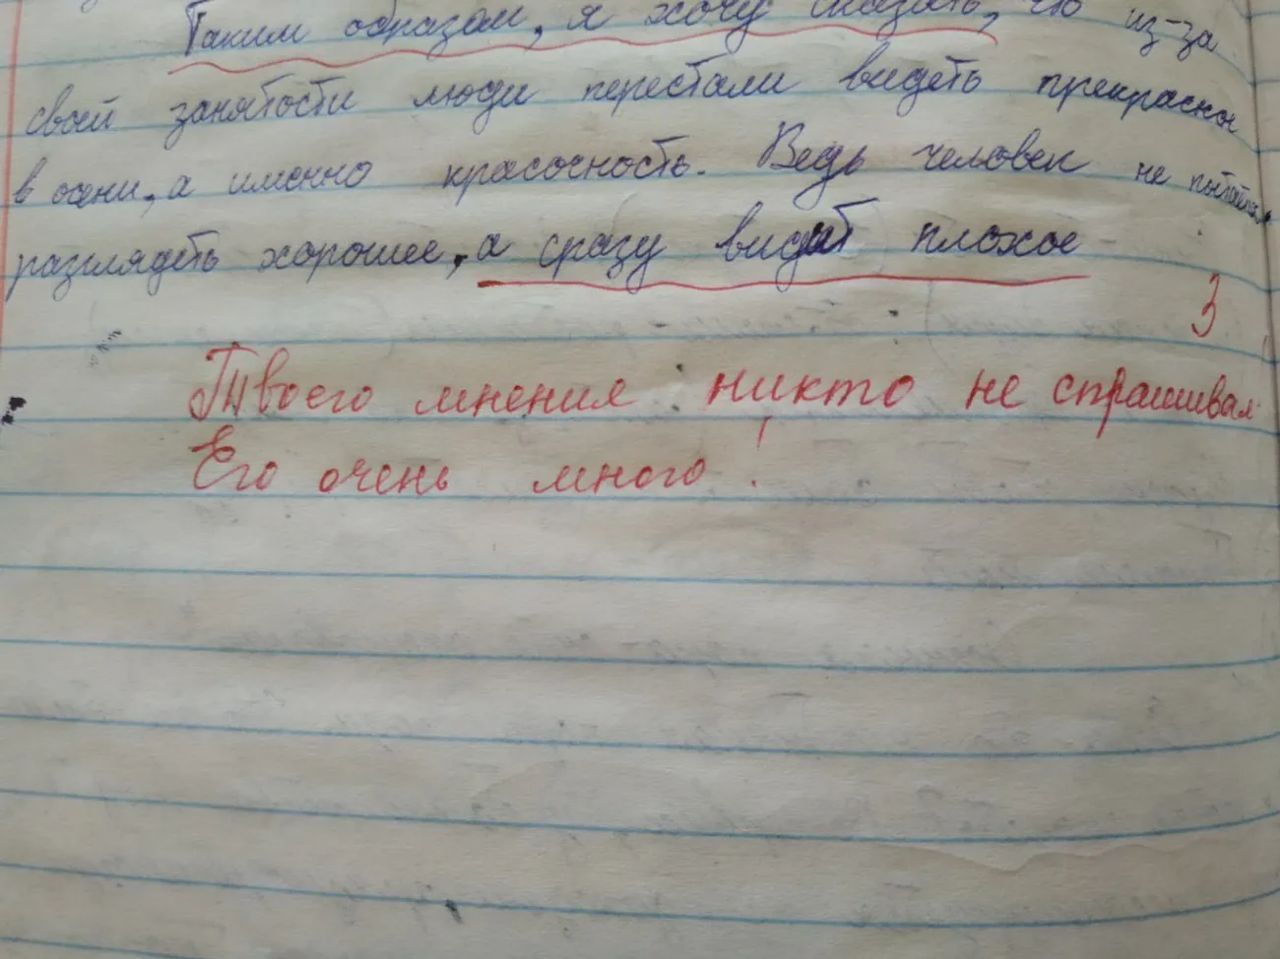 Таким образом, я хочу сказать, что из-за
своей занятости люди перестали видеть прекрасное
в осени, а именно красочность. Ведь человек не пытается
разглядеть хорошее, а сразу видит плохое
3
Твоего мнения никто не спрашивал.
Его очень много!